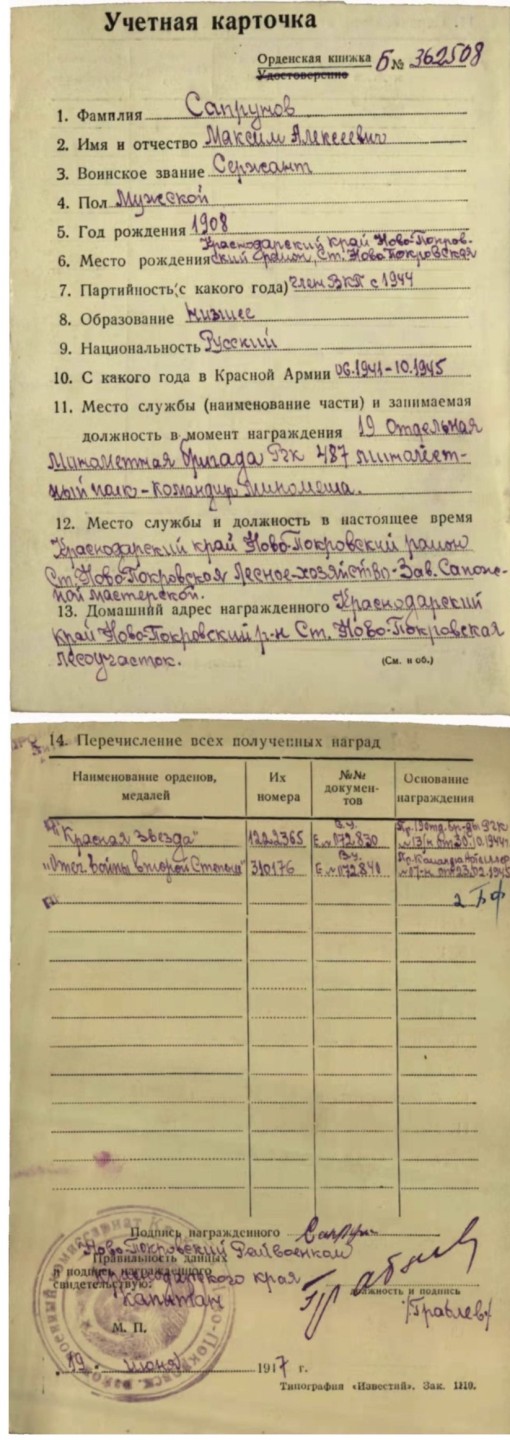 Учетная карточка
Орденская книжка Б № 362508
Удостоверение
1. Фамилия Сапрунов
2. Имя и отчество Максим Алексеевич
3. Воинское звание Сержант
4. Пол Мужской
5. Год рождения 1908
Краснодарский край Ново-Покров-
6. Место рождения ский район, Ст. Ново Покровская
7. Партийность (с какого года) член ВКП с 1944
8. Образование Низшее
9. Национальность Русский
10. С какого года в Красной Армии 06.1941-10.1945
11. Место службы (наименование части) и занимаемая
должность в момент награждения 19 Отдельная
Минометная бригада РГК 487 миномет-
ный полк - Командир Миномета.
12. Место службы и должность в настоящее время
Краснодарский край Ново-Покровский район
Ст. Ново-Покровская Лесное-хозяйство - Зав. Сапож-
ной мастерской.
13. Домашний адрес награжденного Краснодарский
край Ново-Покровский р-н Ст. Ново-Покровская
лесоучасток.
(См. н об.)
14. Перечисление всех полученных наград
Наименование орденов, медалей
Их номера
№№ документов
Основание награждения
"Красная Звезда" 1222365 Е № 072830 Пр. 19 отд. бр-ды РГК № 13/н от 30.10.1944
"Отеч войны второй Степени" 310176 Е № 072840 № 07-н от 23.02.1945
2 БФ
Подпись награжденного
Ново-Покровский Райвоенком
Правильность данных
и подпись награжденного
Краснодарского края
свидетельствую:
Капитан
должность и подпись
/Граблев/
М. П.
19 июня 1947 г.
Типография «Известий». Зак. 1210.